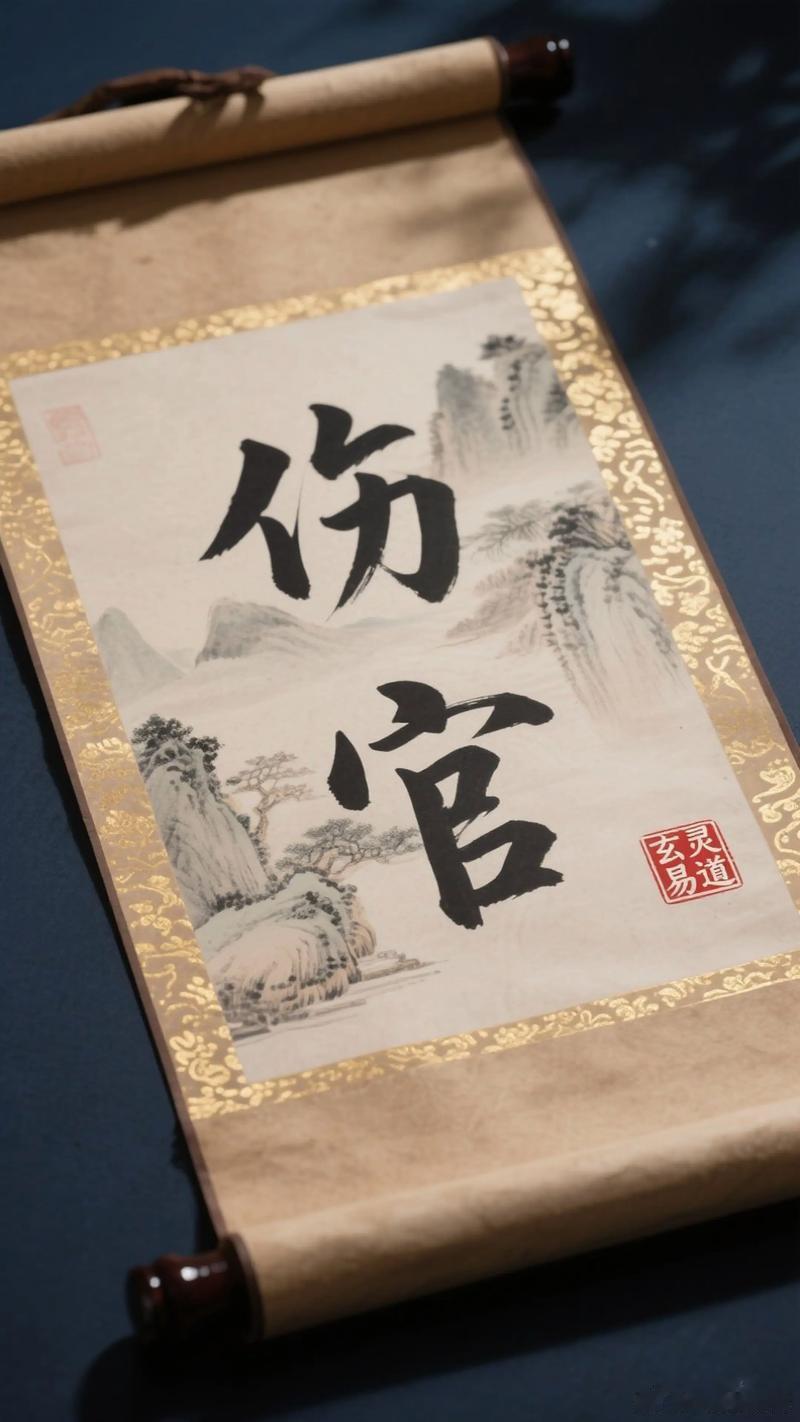 伤
官
灵道
玄易